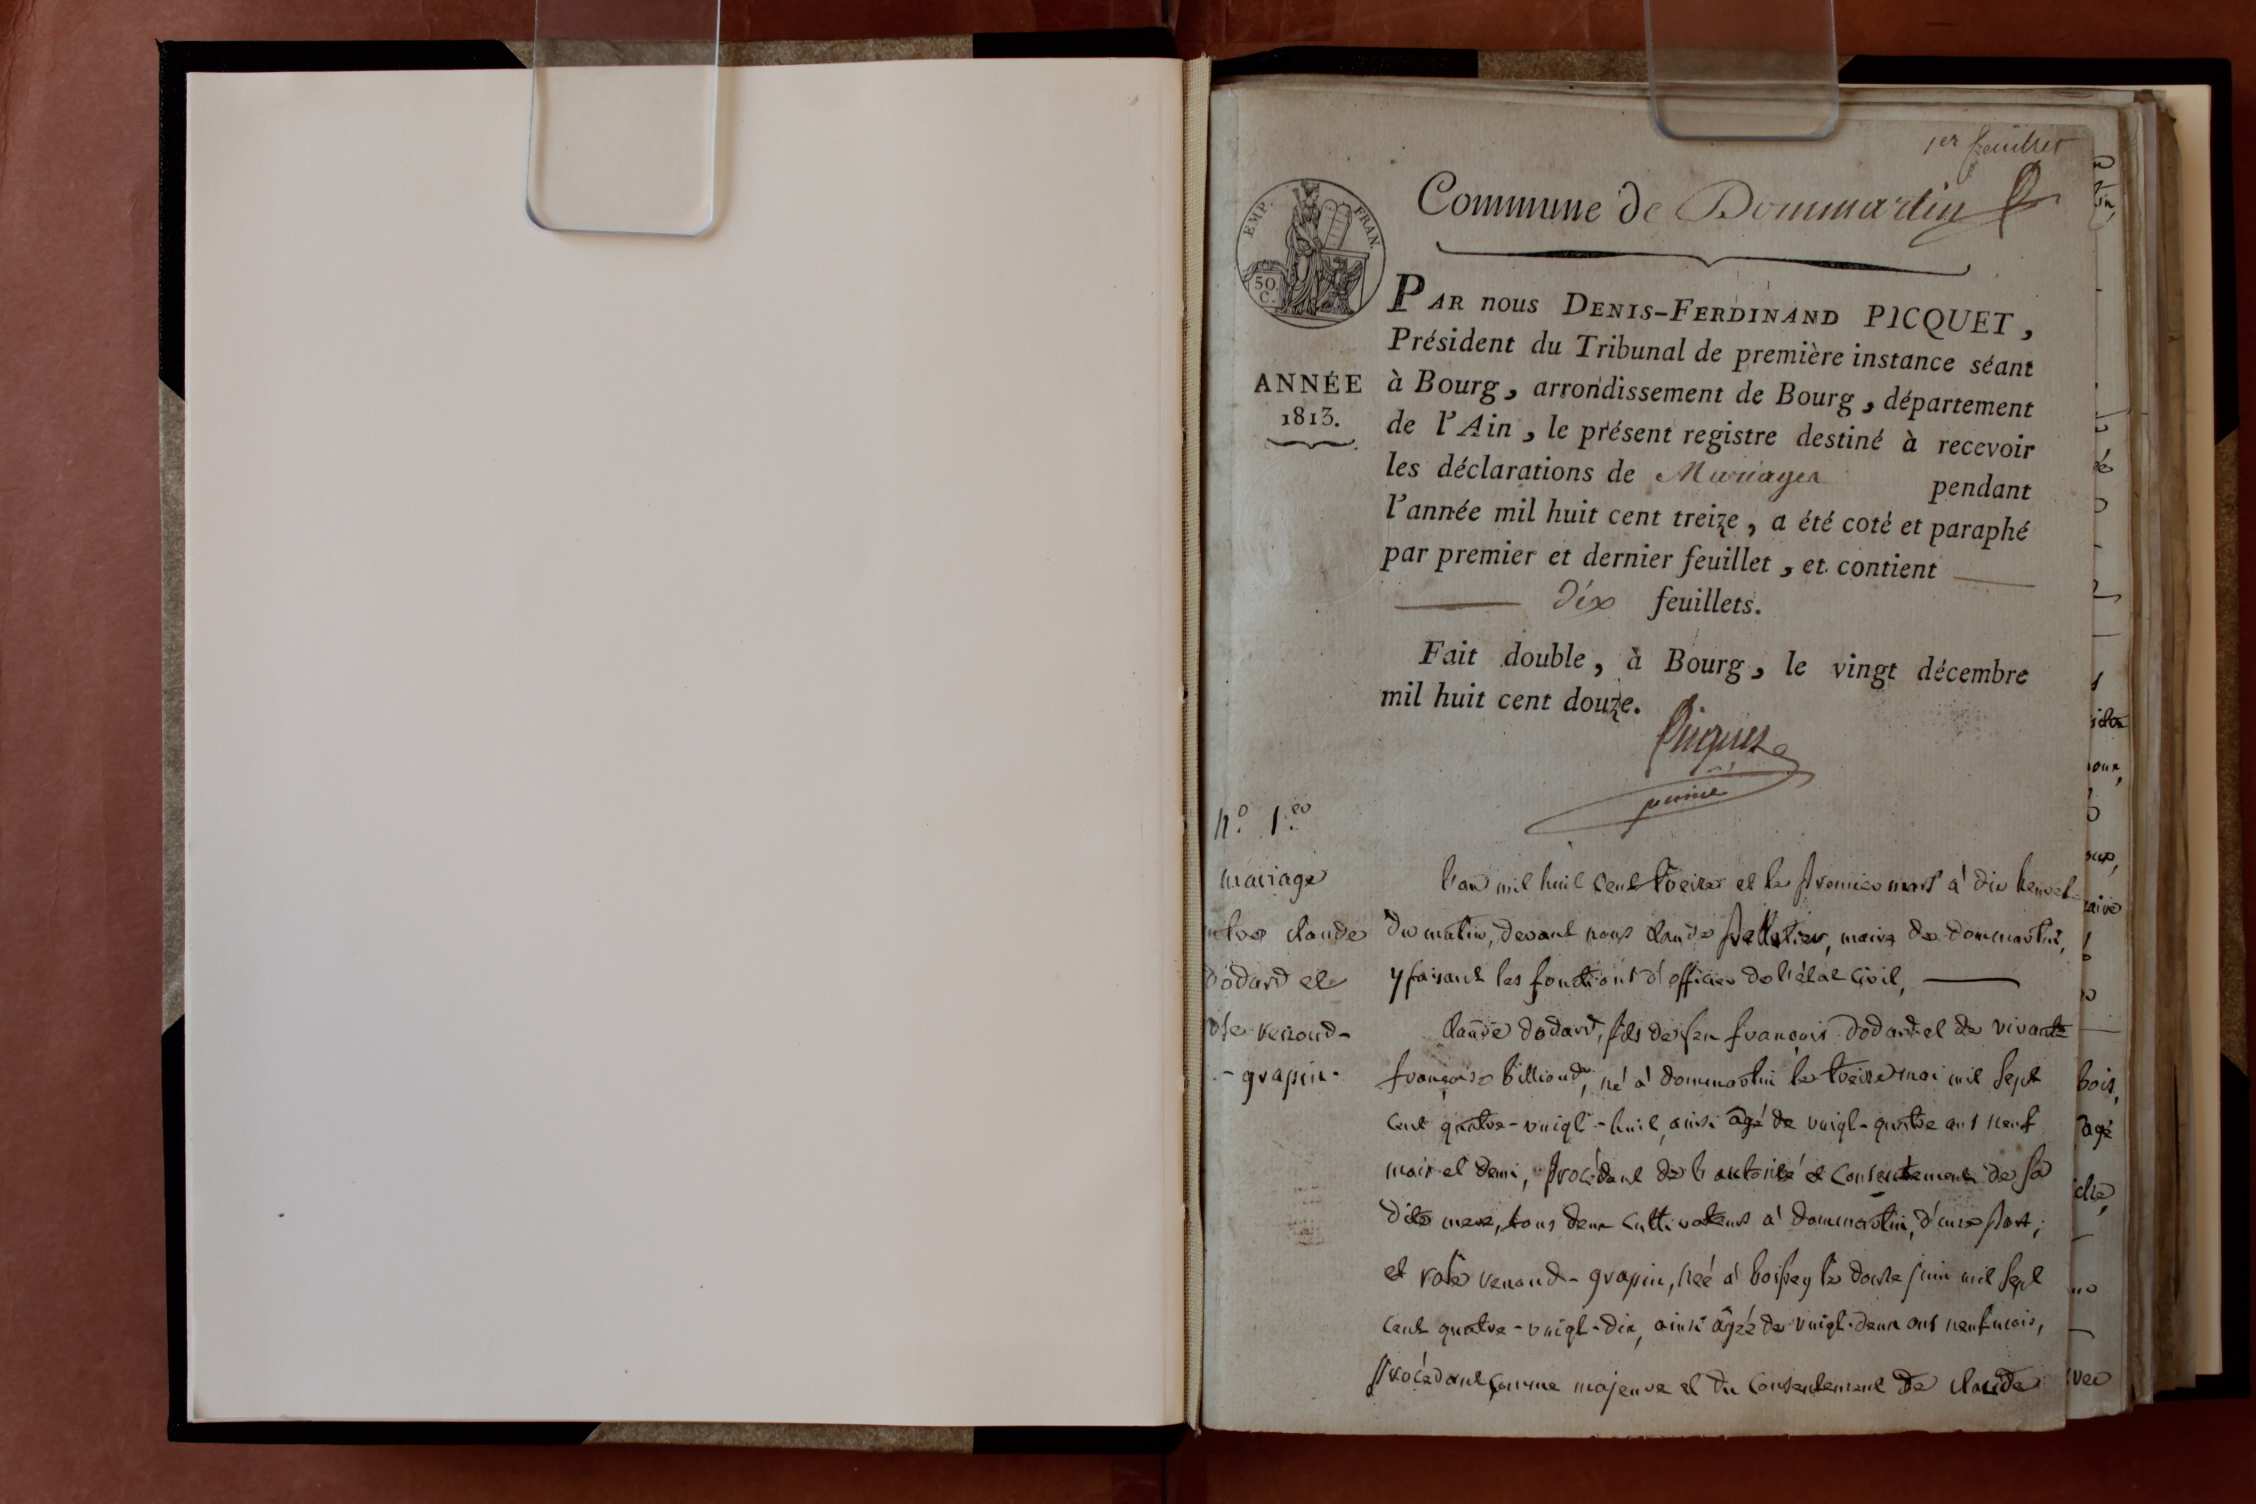 1er feuillet
Commune de Dommartin
EMP. FRAN.
50 C.
PAR nous DENIS-FERDINAND PICQUET,
Président du Tribunal de première instance séant
ANNÉE
1813.
à Bourg, arrondissement de Bourg, département
de l'Ain, le présent registre destiné à recevoir
les déclarations de Mariages pendant
l'année mil huit cent treize, a été coté et paraphé
par premier et dernier feuillet, et contient
dix feuillets.
Fait double, à Bourg, le vingt décembre
mil huit cent douze.
Picquet
n.o 1.er
mariage
entre claude
dodard et
rose renoud-
-grapin.
l'an mil huit cent treize et le premier mars à dix heures
du matin, devant nous claude pelletier, maire de dommartin,
y faisant les fonctions d'officier de l'état civil,
claude dodard, fils de feu françois dodard et de vivante
françoise billioud, né à dommartin le treize mai mil sept
cent quatre-vingt-huit, ainsi âgé de vingt-quatre ans neuf
mois et demi, procédant de l'autorité et consentement de sa
dite mere, tous deux cultivateurs à dommartin, d'une part;
et rose renoud-grapin, née à boissey le douze juin mil sept
cent quatre-vingt-dix, ainsi âgée de vingt-deux ans neuf mois,
procédant comme majeure et du consentement de claude